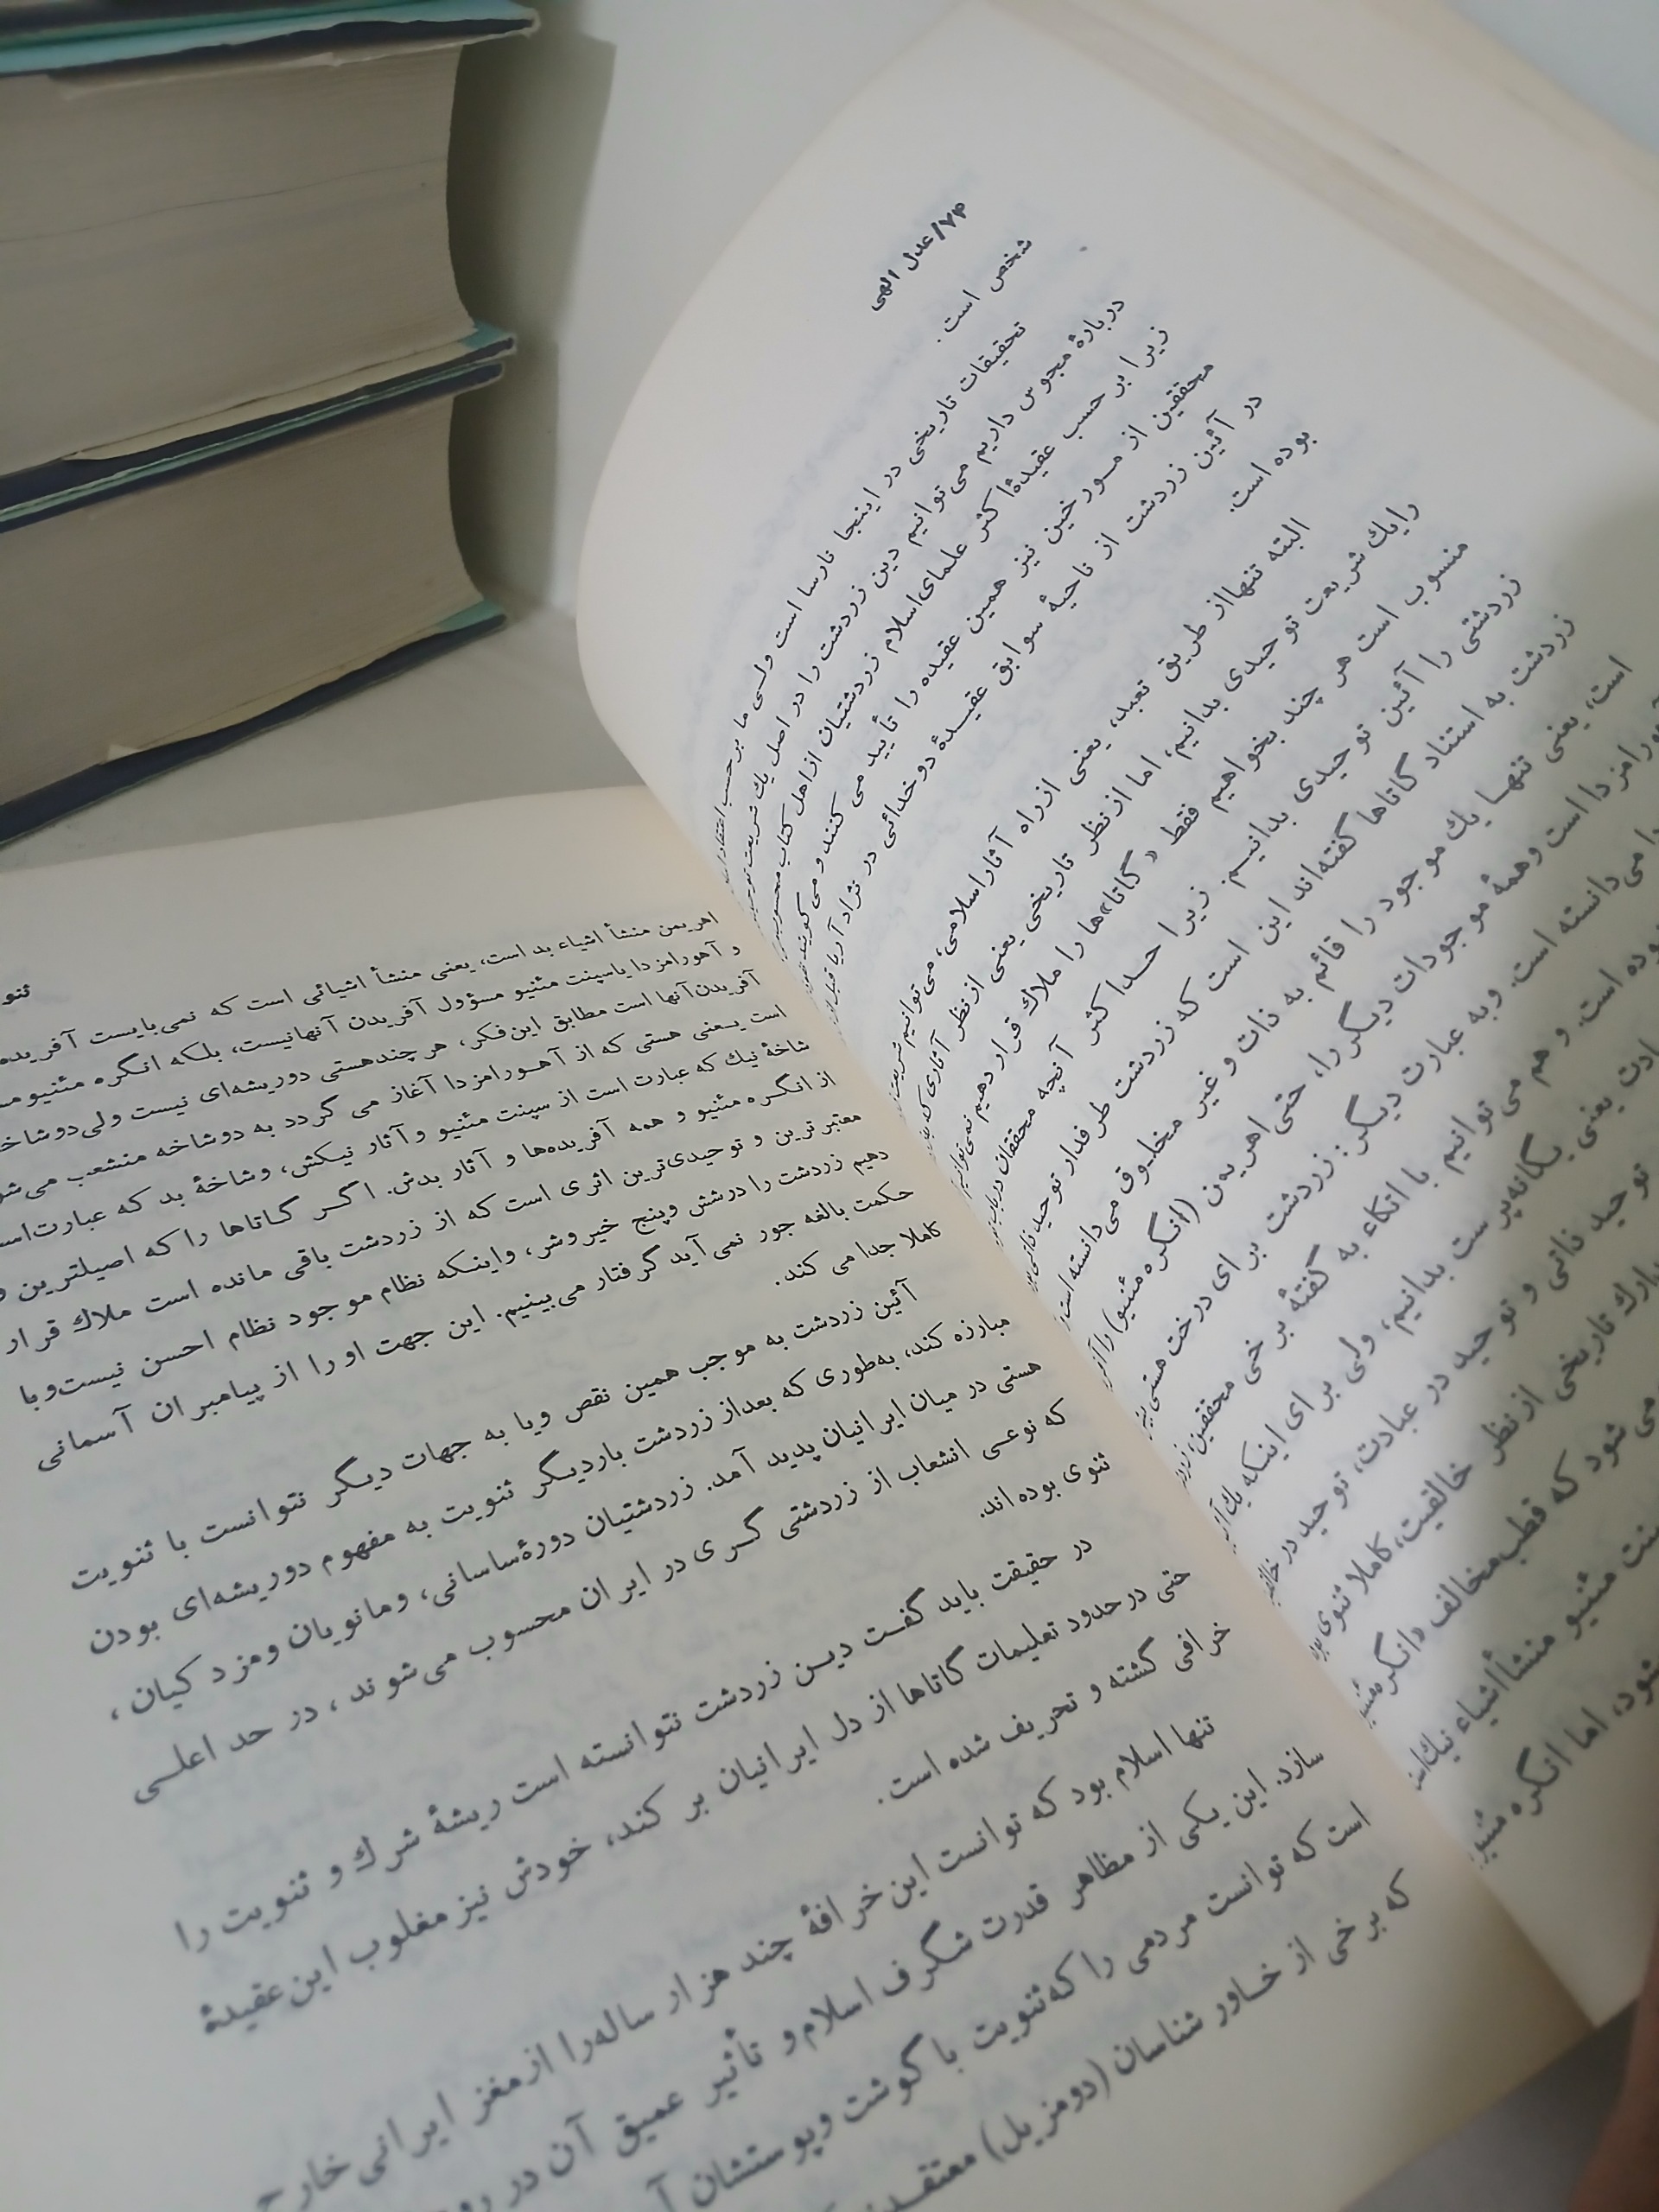 ۷۴/عدل الهی
شخص است.
تحقیقات تاریخی در اینجا نارسا است ولی ما بر حسب
دربارهٔ مجوس داریم می‌توانیم دین زردشت را در اصل یك شریعت
زیرا بر حسب عقیدهٔ اکثر علمای اسلام زردشتیان از اهل کتاب
محققین از مورخین نیز همین عقیده را تأیید می کنند و می گویند
در آئین زردشت از ناحیهٔ سوابق عقیدهٔ دوخدائی در نژاد آریا قبل از
بوده است.
البته تنها از طریق تعبد، یعنی از راه آثار اسلامی، می‌توانیم
را یك شریعت توحیدی بدانیم، اما از نظر تاریخی یعنی از نظر آثاری که
منسوب است هر چند بخواهیم فقط «گاتا»ها را ملاك قرار دهیم نمی‌توانیم
زردشتی را آئین توحیدی بدانیم. زیرا حداکثر آنچه محققان
زردشت به استناد گاتاها گفته‌اند این است که زردشت طرفدار توحید ذاتی
است، یعنی تنها یك موجود را قائم به ذات و غیر مخلوق می‌دانسته است
است وهمهٔ موجودات دیگر را، حتی اهریمن (انگره مئنیو) را
می‌دانسته است. وبه عبارت دیگر: زردشت برای درخت هستی
بوده است. و هم می توانیم با اتکاء به گفتهٔ برخی محققین،
یعنی یگانه‌پرست بدانیم، ولی برای اینکه یك
توحید ذاتی و توحید در عبادت، توحید در
تاریخی از نظر خالقیت، کاملا ثنوی
می شود که قطب مخالف «انگره
مئنیو منشأ اشیاء نیك
شود، اما انگره مئنیو
اهریمن منشأ اشیاء بد است، یعنی منشأ اشیائی است که نمی‌بایست آفریده
و آهورامزدا یاسپنت مئنیو مسؤول آفریدن آنهانیست، بلکه انگره مئنیو
آفریدن آنها است مطابق این فکر، هر چند هستی دو ریشه‌ای نیست ولی دو شاخه
است یعنی هستی که از آهورامزدا آغاز می گردد به دوشاخه منشعب می‌شود
شاخهٔ نیك که عبارت است از سپنت مئنیو و آثار نیکش، وشاخهٔ بد که عبارت است
از انگره مئنیو و همه آفریده‌ها و آثار بدش. اگر گاتاها را که اصیلترین و
معتبرترین و توحیدی‌ترین اثری است که از زردشت باقی مانده است ملاك قرار
دهیم زردشت را درشش وپنج خیر وشر، واینکه نظام موجود نظام احسن نیست‌وبا
حکمت بالغه جور نمی آید گرفتار می‌بینیم. این جهت او را از پیامبران آسمانی
کاملا جدا می کند.
آئین زردشت به موجب همین نقص ویا به جهات دیگر نتوانست با ثنویت
مبارزه کند، به‌طوری که بعداز زردشت باردیگر ثنویت به مفهوم دوریشه‌ای بودن
هستی در میان ایرانیان پدید آمد. زردشتیان دورهٔ ساسانی، ومانویان ومزدکیان،
که نوعی انشعاب از زردشتی گری در ایران محسوب می‌شوند، در حد اعلی
ثنوی بوده‌اند.
در حقیقت باید گفت دین زردشت نتوانسته است ریشهٔ شرك و ثنویت را
حتی درحدود تعلیمات گاتاها از دل ایرانیان بر کند، خودش نیز مغلوب این عقیدهٔ
خرافی گشته و تحریف شده است.
تنها اسلام بود که توانست این خرافهٔ چند هزار ساله را ازمغز ایرانی خارج
سازد. این یکی از مظاهر قدرت شگرف اسلام و تأثیر عمیق آن در
است که توانست مردمی را که ثنویت با گوشت و پوستشان
که برخی از خاورشناسان (دومزیل) معتقدند